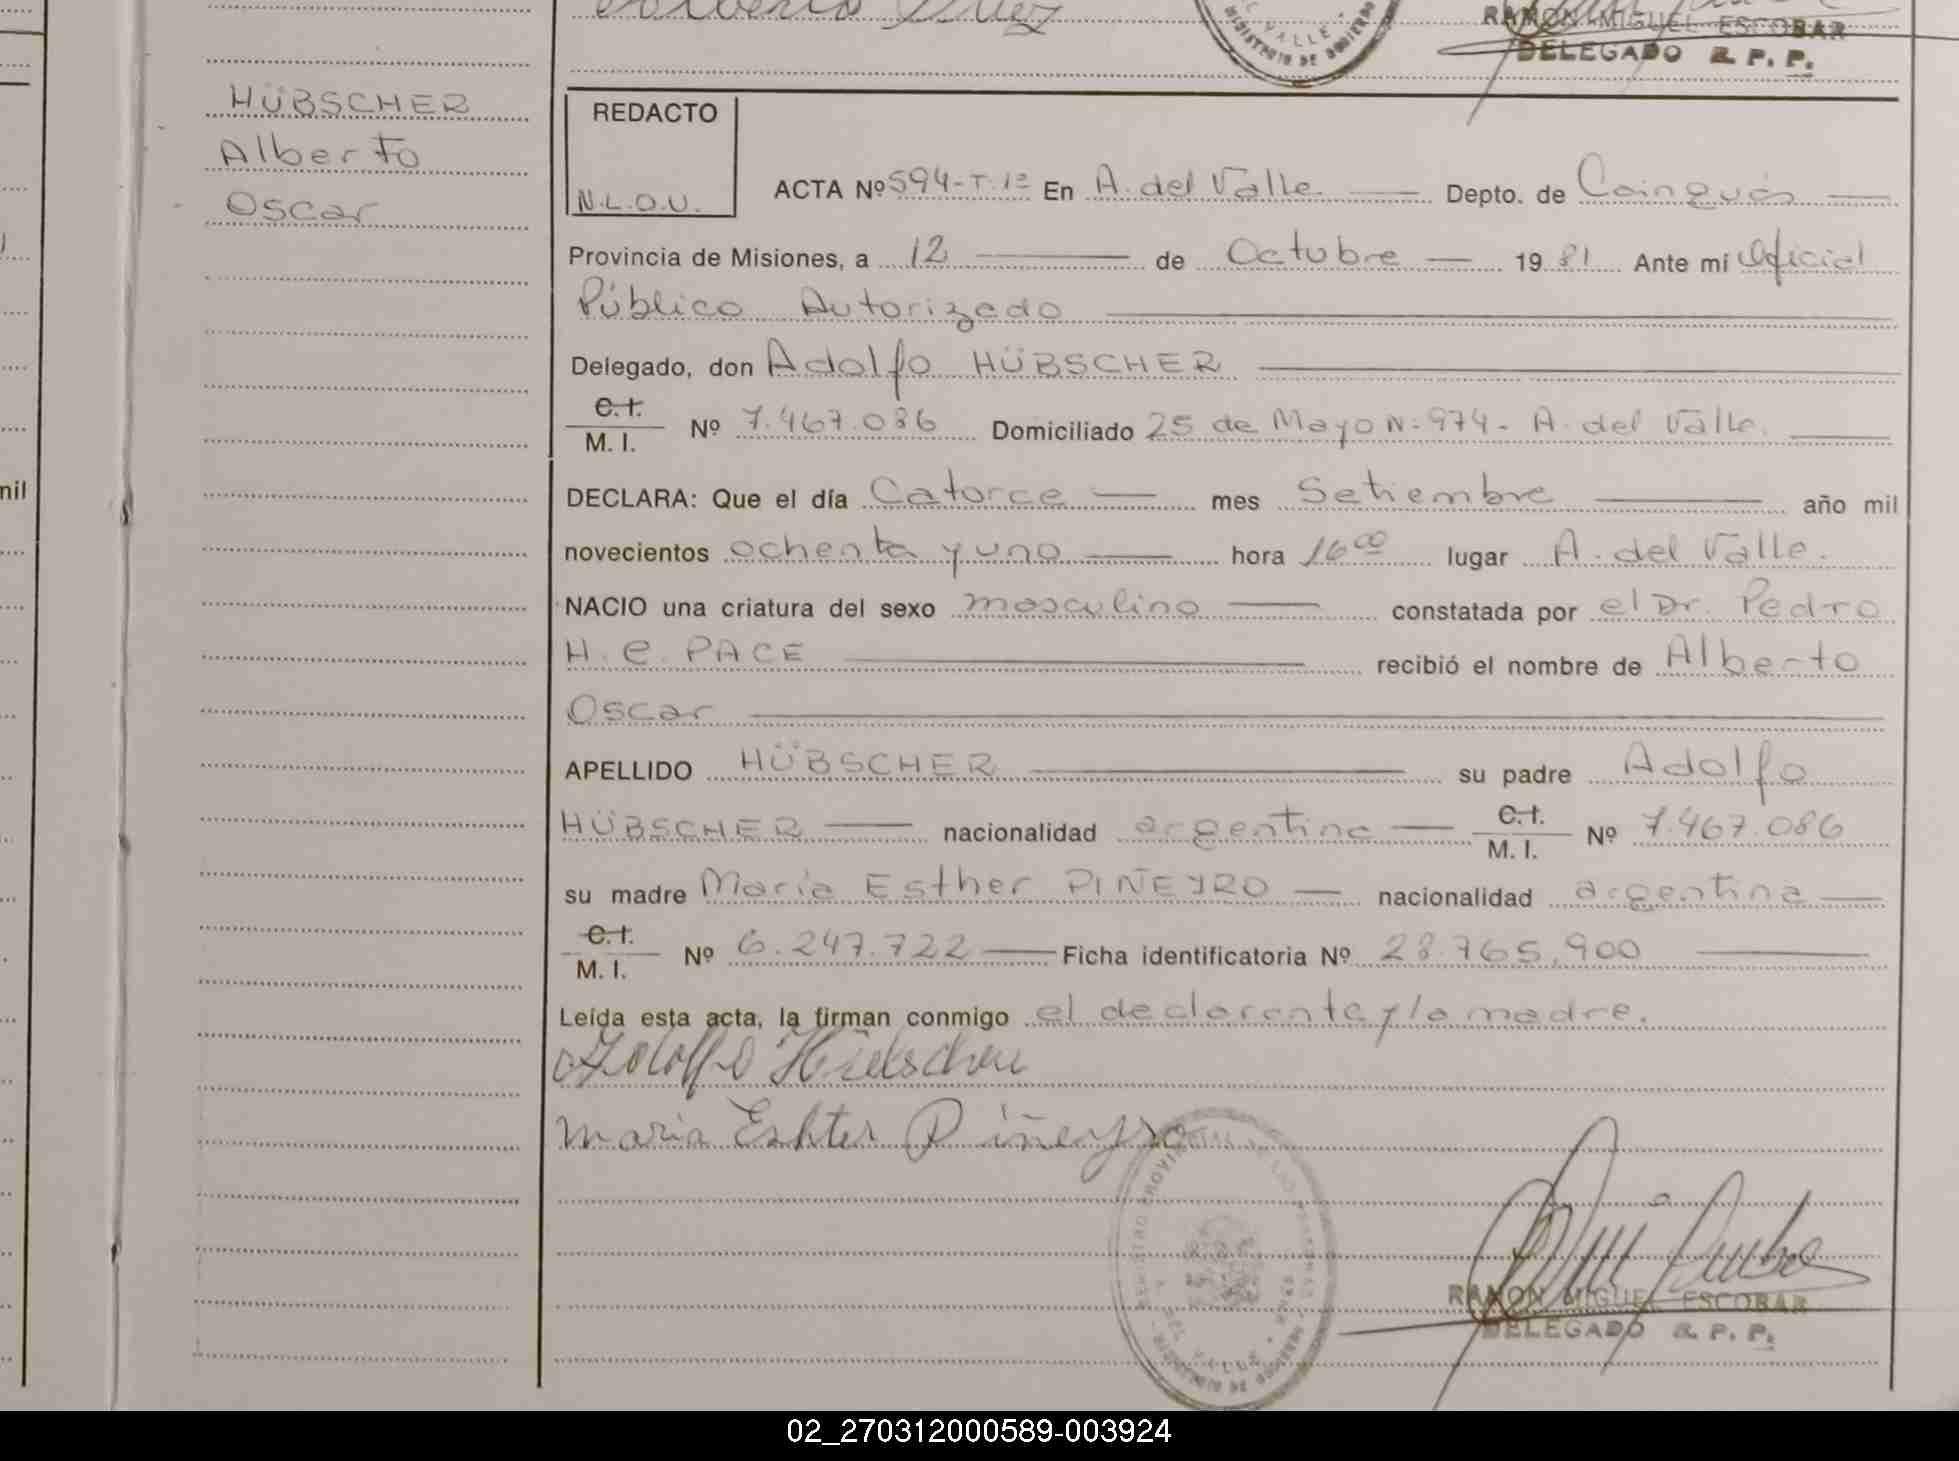 RAMON MIGUEL ESCOBAR
DELEGADO R. P. P.
VALLE
MINISTERIO DE GOBIERNO
HÜBSCHER
Alberto
Oscar
REDACTO
N.L.O.U.
ACTA Nº 594-T.1º En A. del Valle Depto. de Cainguás
Provincia de Misiones, a 12 de Octubre 1981 Ante mi Oficial
Público Autorizado
Delegado, don Adolfo HÜBSCHER
C.I.
M. I. Nº 7.467.086 Domiciliado 25 de Mayo N-974- A. del Valle.
DECLARA: Que el día Catorce mes Setiembre año mil
novecientos ochenta y uno hora 16 00 lugar A. del Valle.
NACIO una criatura del sexo masculino constatada por el Dr. Pedro
H. C. PACE recibió el nombre de Alberto
Oscar
APELLIDO HÜBSCHER su padre Adolfo
HÜBSCHER nacionalidad argentina C.I.
M. I. Nº 7.467.086
su madre María Esther PIÑEYRO nacionalidad argentina
C.I.
M. I. Nº 6.247.722 Ficha identificatoria Nº 28.765.900
Leída esta acta, la firman conmigo el declarante y la madre.
Adolfo Hübscher
maria Eshter Piñeyro
RAMON MIGUEL ESCOBAR
DELEGADO R. P. P.
nil
02_270312000589-003924